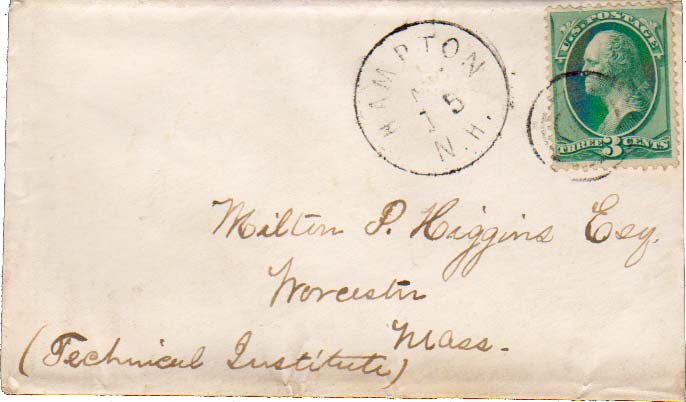 U.S. POSTAGE
THREE 3 CENTS
HAMPTON
15
N.H.
Milton P. Higgins Esq.
Worcester
Mass.
(Technical Institute)